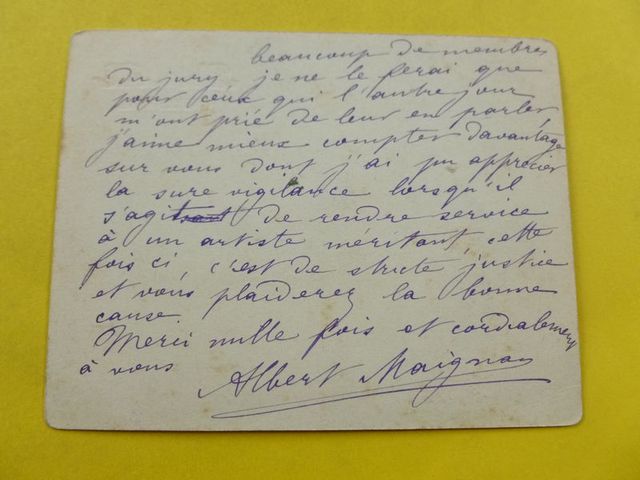 beaucoup de membres
du jury je ne le ferai que
pour ceux qui l'autre jour
m'ont prié de leur en parler,
j'aime mieux compter davantage
sur vous dont j'ai pu apprécier
la sure vigilance lorsqu'il
s'agit de rendre service
à un artiste méritant, cette
fois ci, c'est de stricte justice
et vous plaiderez la bonne
cause.
Merci mille fois et cordialement
à vous
Albert Maignan